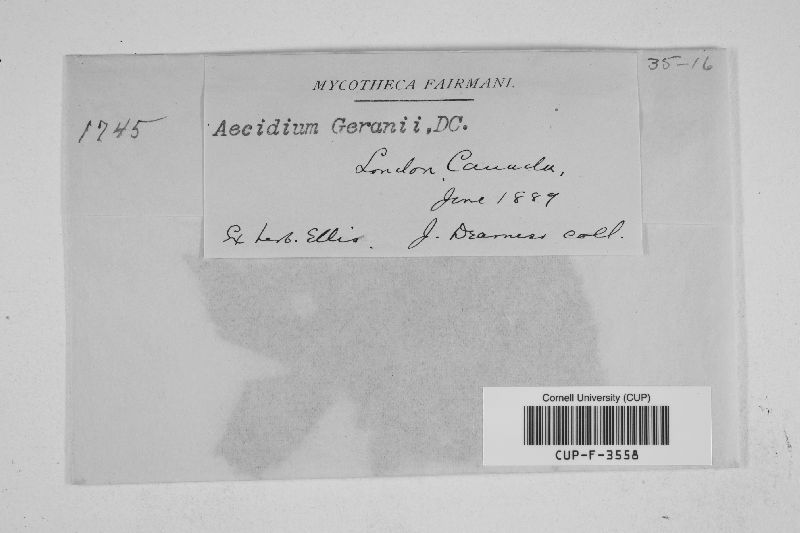 35-16
1745
MYCOTHECA FAIRMANI.
Aecidium Geranii, DC.
London, Canada,
June 1889
Ex herb. Ellis. J. Dearness coll.
Cornell University (CUP)
CUP-F-3558